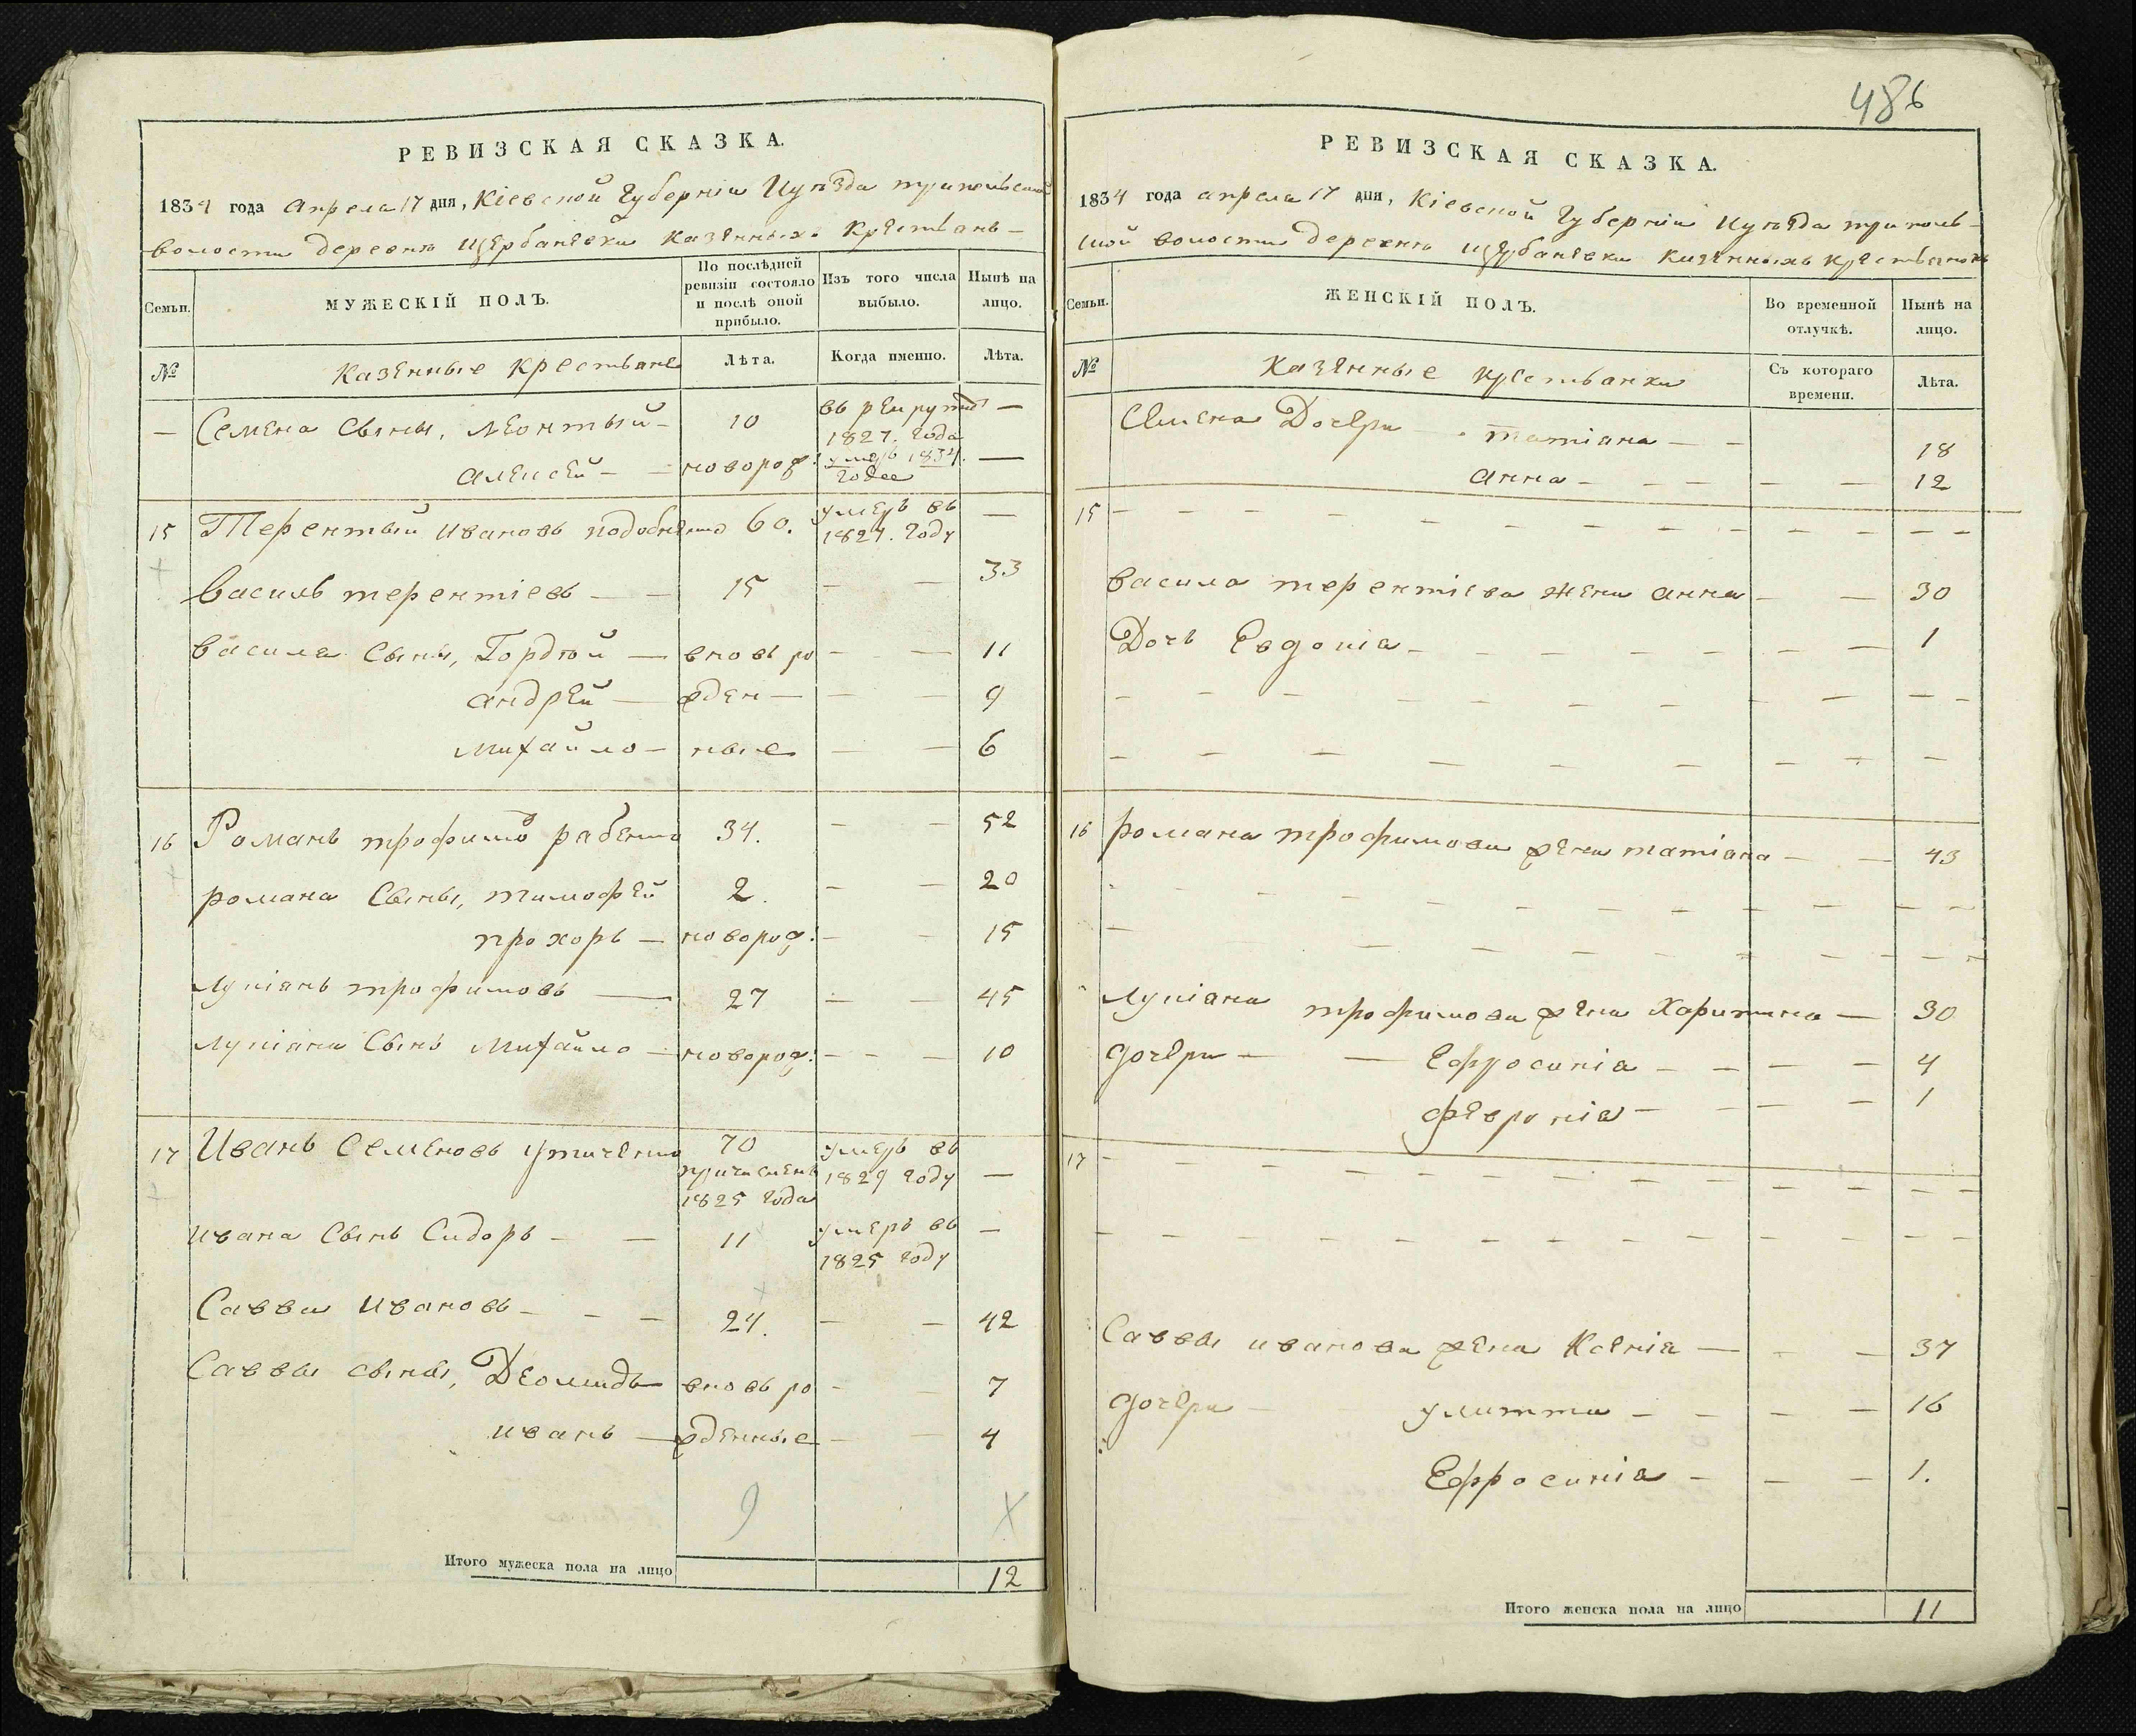 РЕВИЗСКАЯ СКАЗКА.
1834 года Апреля 17 дня, Кіевской Губерніи И уѣзда трипольской
волости деревни Щербанѣвки казенныхъ Крестьянъ –
Семьи. МУЖЕСКІЙ ПОЛЪ. По послѣдней ревизіи состояло и послѣ оной прибыло. Изъ того числа выбыло. Нынѣ на лицо.
№ Казенные Крестьяне Лѣта. Когда именно. Лѣта.
– Семена Сыны, Леонтый – 10 въ рекруты 1827. года –
Алексей – новорож: умеръ 1834. года –
15 Терентый Ивановъ 60. умеръ въ 1827. году –
Василь терентіевъ – 15 – – 33
Василя Сыны, Гордѣй – вновь ро – – 11
Андрей – жден – – – 9
Михайло – ные – – 6
16 Романъ трофимо рабенко 34. – – 52
романа Сыны, тимофей 2. – – 20
прохоръ – новорож: – – 15
Лукіянъ трофимовъ – 27 – – 45
Лукіяна Сынъ Михайло – новорож: – – – 10
17 Иванъ Семеновъ 70 причисленъ 1825 года умеръ въ 1829 году –
Ивана Сынъ Сидоръ – – 11 умеръ въ 1825 году –
Савва Ивановъ – – – 24. – – 42
Саввы сыны, Деомидъ вновь ро – – 7
иванъ – жденные – – 4
9
Итого мужеска пола на лицо 12
486
РЕВИЗСКАЯ СКАЗКА.
1834 года апреля 17 дня, Кіевской Губерніи И уѣзда триполь-
ской волости деревни Щербанѣвки казенныхъ крестьянокъ
Семьи. ЖЕНСКІЙ ПОЛЪ. Во временной отлучкѣ. Нынѣ на лицо.
№ Казенные крестьянки Съ котораго времени. Лѣта.
Семена Дочери – татіана – – 18
анна – – – – – 12
15 – – – – – – – – – –
Василя терентіева жена анна – – 30
Дочь Евдокія – – – – – – – 1
16 романа трофимова жена татіана – – 43
Лукіяна трофимова жена Харитина – 30
дочери – – Ефросинія – – – – 4
февронія – – – – 1
17 – – – – – – – – – –
Саввы иванова жена Ксенія – – – 37
дочери – улитта – – – – 16
Ефросинія – – – 1.
Итого женска пола на лицо 11